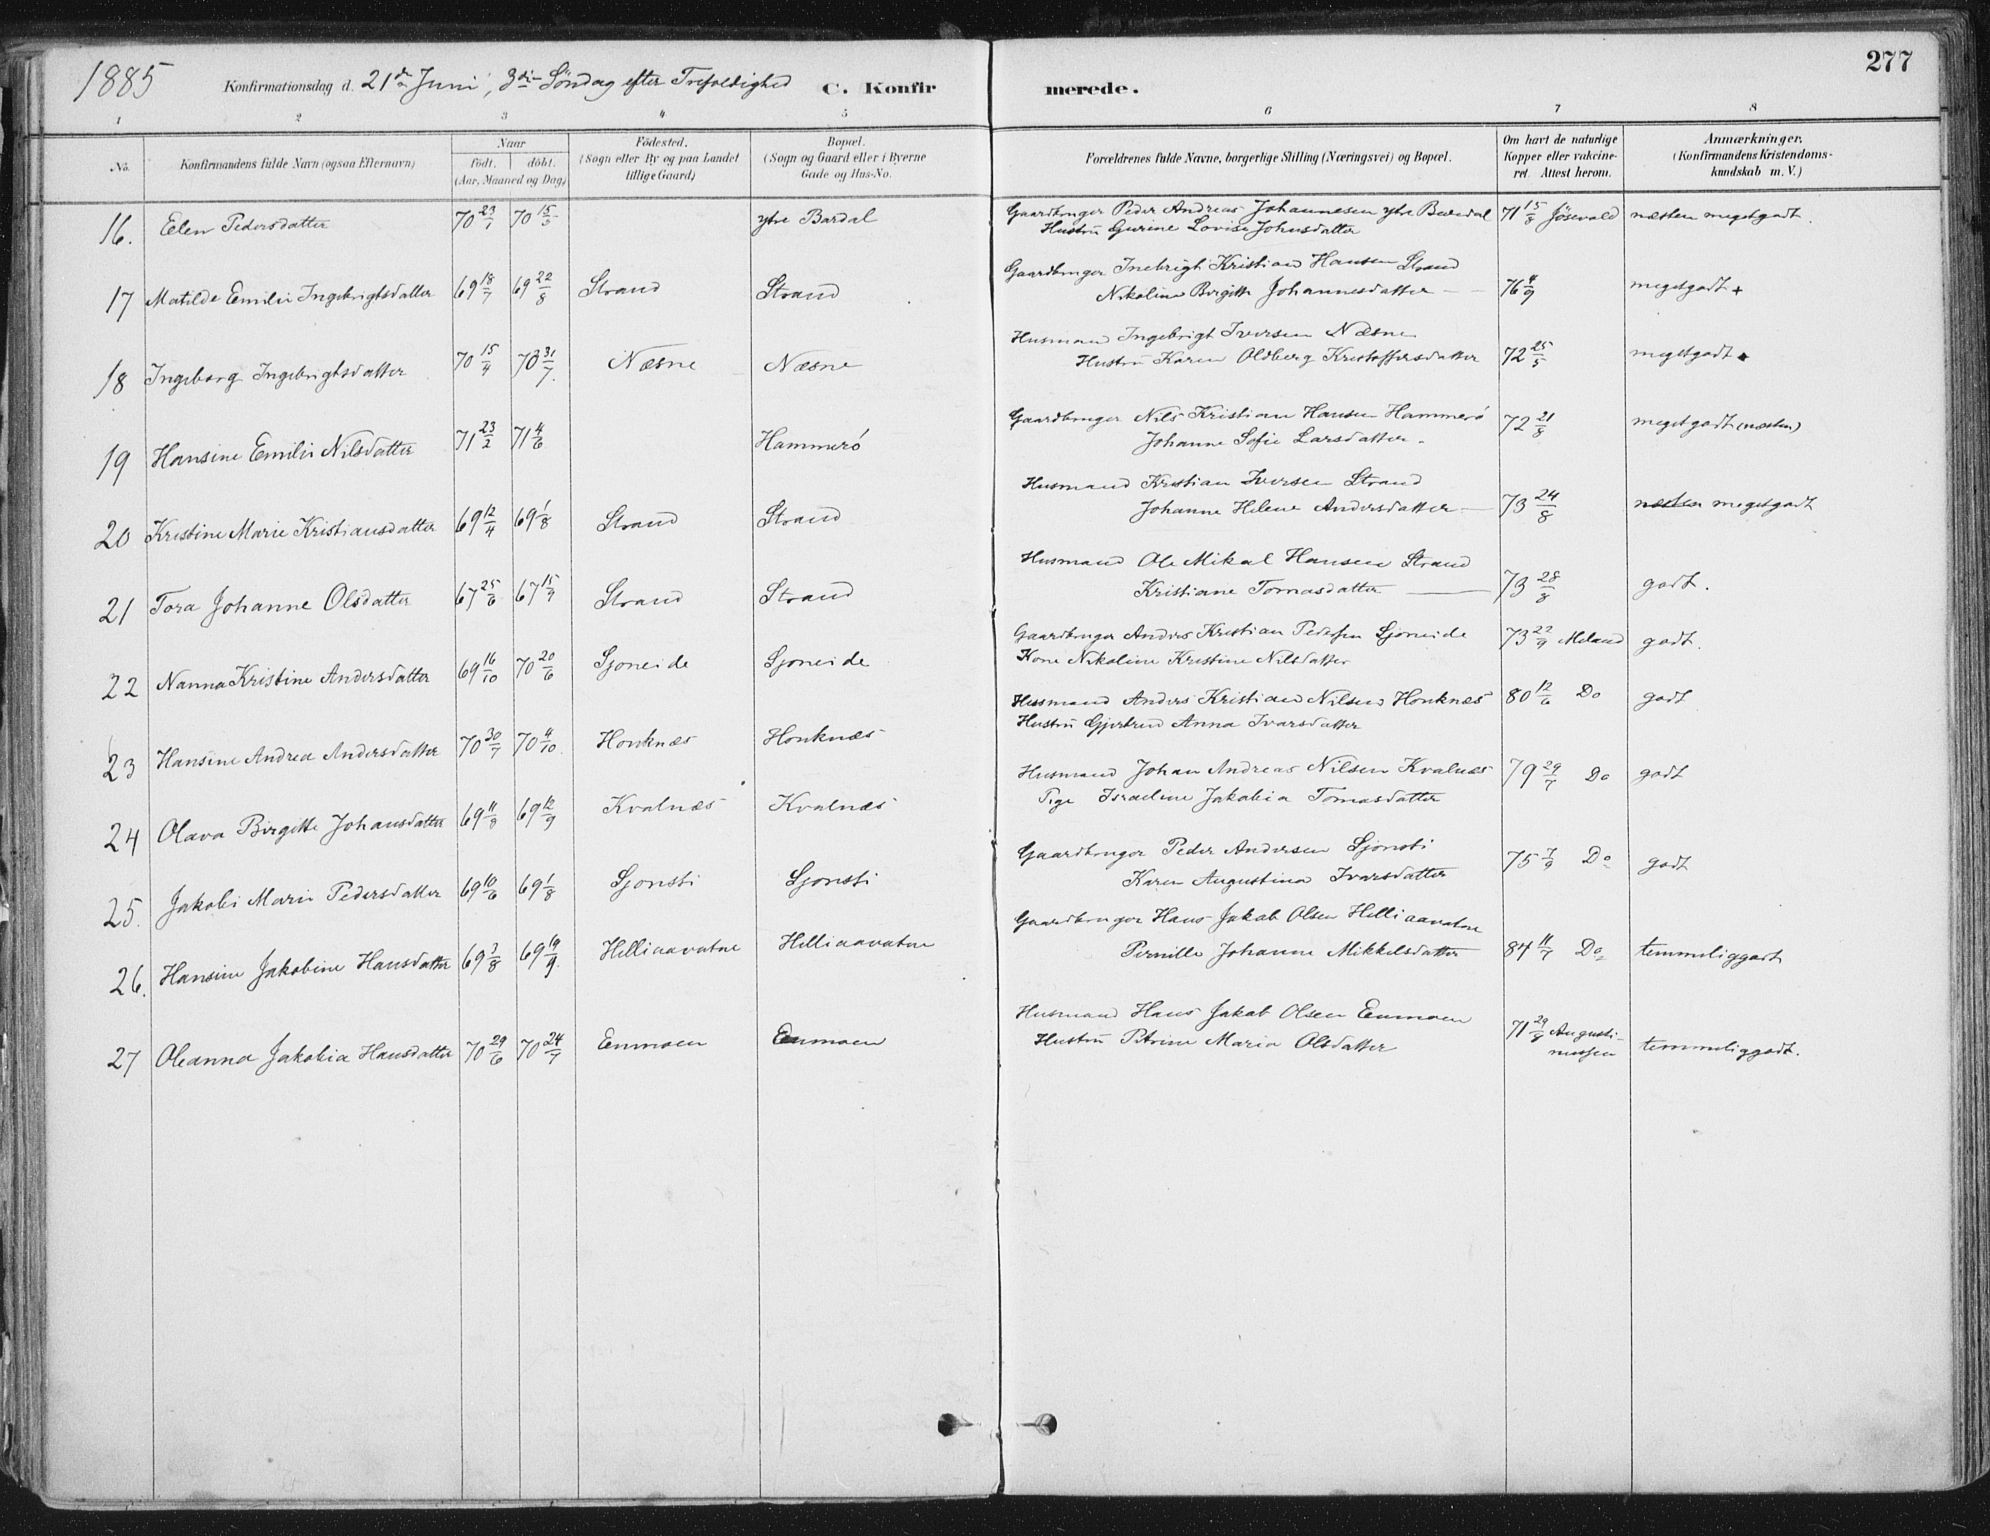 277
1885 Konfirmationsdag d. 21de Juni, 3die Söndag efter Trefoldighed C. Konfirmerede.
1 2 3 4 5 6 7 8
No. Konfirmandens fulde Navn (ogsaa Efternavn) Naar födt. döbt. (Aar, Maaned og Dag) Födested. (Sogn eller By og paa Landet tillige Gaard) Bopæl. (Sogn og Gaard eller i Byerne Gade og Hus-No. Forældrenes fulde Navne, borgerlige Stilling (Næringsvei) og Bopæl. Om havt de naturlige Kopper eller vakcineret. Attest herom. Anmærkninger. (Konfirmandens Kristendomskundskab m. V.)
16. Elen Pedersdatter 70 23/1 70 15/3 ytre Bardal Gaardbruger Peder Andreas Johannesen ytre Bardal 71 15/8 Jösevold næsten megetgodt.
Hustru Gurine Lovise Johnsdatter
17 Matilde Emilie Ingebrigtsdatter 69 18/7 69 22/8 Strand Strand Gaardbruger Inebrigt Kristian Hansen Strand 76 4/9 megetgodt +
Nikoline Birgitte Johannesdatter —
18 Ingeborg Ingebrigtsdatter 70 15/4 70 31/7. Næsne Næsne Husmand Ingebrigt Iversen Næsne 72 25/5 megetgodt
Hustru Karen Oldberg Kristoffersdatter
19 Hansine Emilie Nilsdatter 71 23/2 71 4/6 Hammerö Gaardbruger Nils Kristian Hansen Hammerö 72 21/8 megetgodt (næsten)
Johanne Sofie Larsdatter.
20 Kristine Marie Kristiansdatter 69 12/4 69 1/8 Strand Strand Husmand Kristian Iversen Strand 73 24/8 næsten megetgodt
Johanne Helene Andersdatter —
21 Tora Johanne Olsdatter 67 25/6 67 15/9 Strand Strand Husmand Ole Mikal Hansen Strand 73 28/8 godt.
Kristiane Tomasdatter —
22 Nanna Kristine Andersdatter 69 16/10 70 20/6 Sjoneide Sjoneide Gaardbruger Anders Kristian Pedersen Sjoneide 73 22/9 Meland godt.
Kone Nikoline Kristine Nilsdatter
23 Hansine Andrea Andersdatter 70 30/7 70 4/10. Honknæs Honknæs Husmand Anders Kristian Nilsen Honknæs 80 12/6 Do godt
Hustru Gjertrud Anna Ivarsdatter
24 Olava Birgitte Johansdatter 69 11/8 69 12/9 Kvalnæs Kvalnæs Husmand Johan Andreas Nilsen Kvalnæs 79 29/7 Do godt
Pige Israeline Jakobia Tomasdatter
25. Jakobi Marie Pedersdatter 69 10/6 69 1/8 Sjonsti Sjonsti Gaardbruger Peder Andersen Sjonsti 75 7/9 Do godt
Karen Augustina Ivarsdatter
26. Hansine Jakobine Hansdatter 69 3/8 69 19/9. Helliaavatne Helliaavatne Gaardbruger Hans Jakob Olsen Helliaavatne 84 11/7 Do temmeliggodt
Pernille Johanne Mikkelsdatter
27 Oleanna Jakobia Hansdatter 70 29/6 70 24/7 Enmoen Enmoen Husmand Hans Jakob Olsen Enmoen 71 29/8 Augustinussen temmeliggodt.
Hustru Petrine Maria Olsdatter